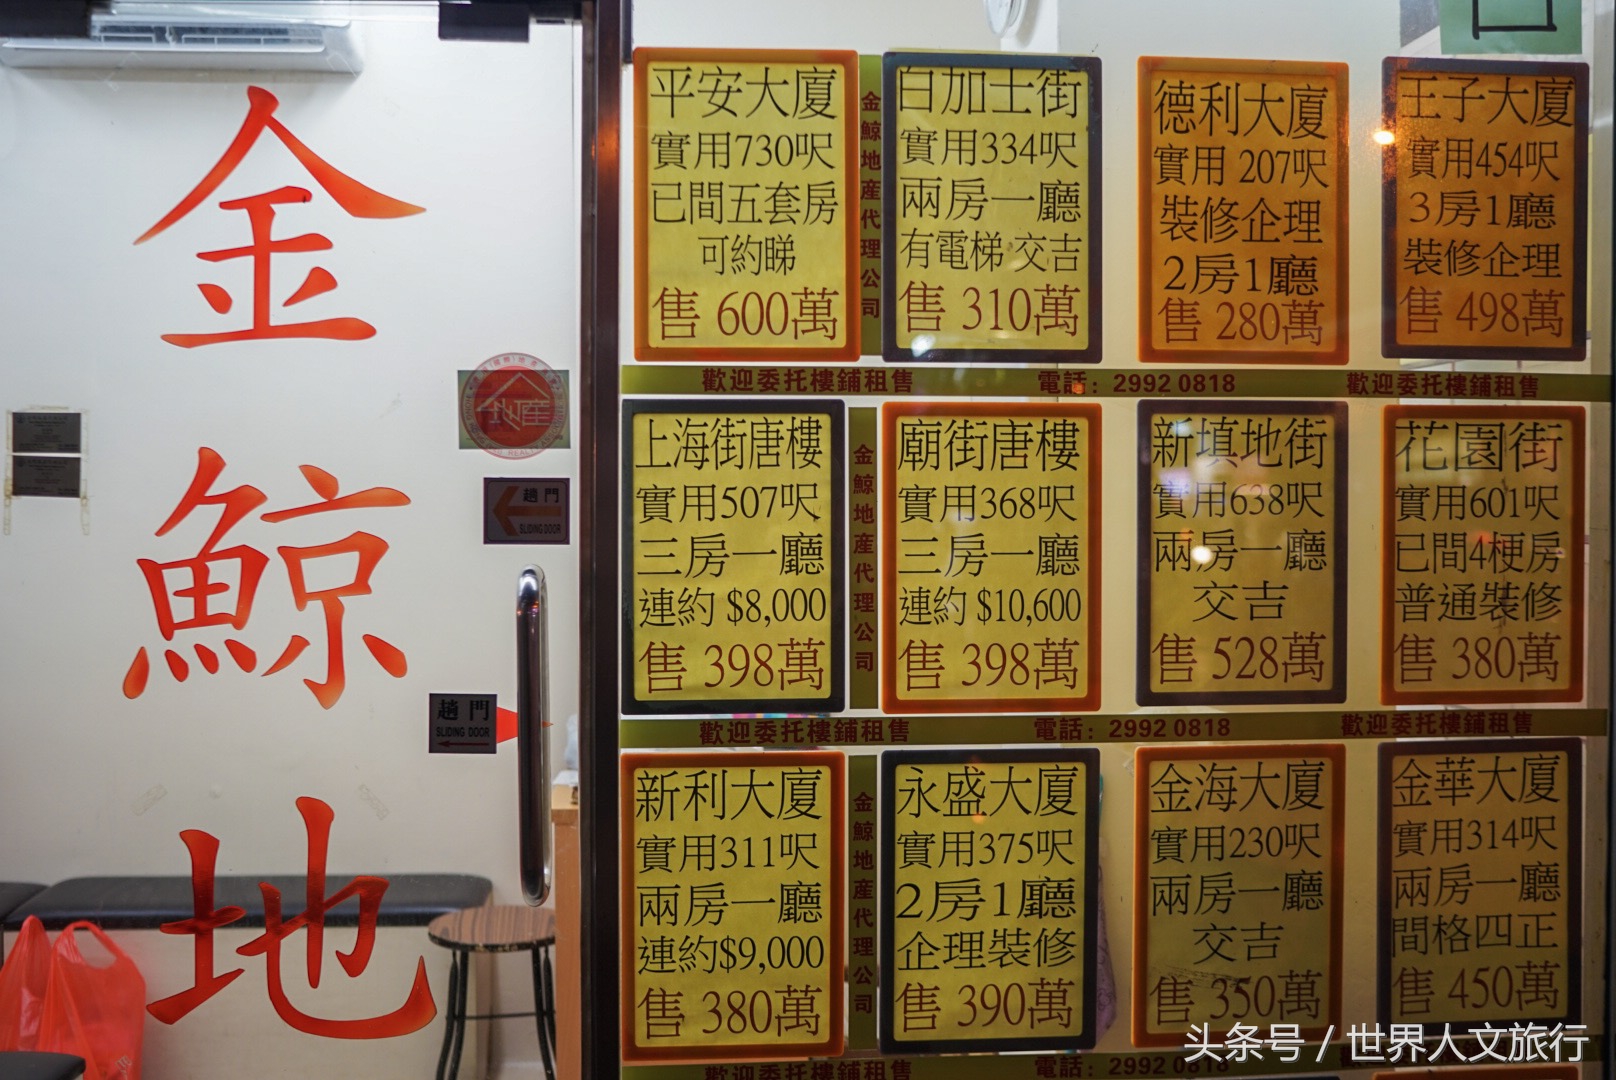 金鯨地
地産
趟門
SLIDING DOOR
趟門
SLIDING DOOR
平安大廈
實用730呎
已間五套房
可約睇
售 600萬
金鯨地産代理公司
白加士街
實用334呎
兩房一廳
有電梯 交吉
售 310萬
德利大廈
實用 207呎
裝修企理
2房1廳
售 280萬
王子大廈
實用454呎
3房1廳
裝修企理
售 498萬
歡迎委托樓鋪租售 電話：2992 0818 歡迎委托樓鋪租售
上海街唐樓
實用507呎
三房一廳
連約 $8,000
售 398萬
金鯨地産代理公司
廟街唐樓
實用368呎
三房一廳
連約 $10,600
售 398萬
新填地街
實用638呎
兩房一廳
交吉
售 528萬
花園街
實用601呎
已間4梗房
普通裝修
售 380萬
歡迎委托樓鋪租售 電話：2992 0818 歡迎委托樓鋪租售
新利大廈
實用311呎
兩房一廳
連約$9,000
售 380萬
金鯨地産代理公司
永盛大廈
實用375呎
2房1廳
企理裝修
售 390萬
金海大廈
實用230呎
兩房一廳
交吉
售 350萬
金華大廈
實用314呎
兩房一廳
間格四正
售 450萬
歡迎委托樓鋪租售 電話：2992 0818
头条号 / 世界人文旅行